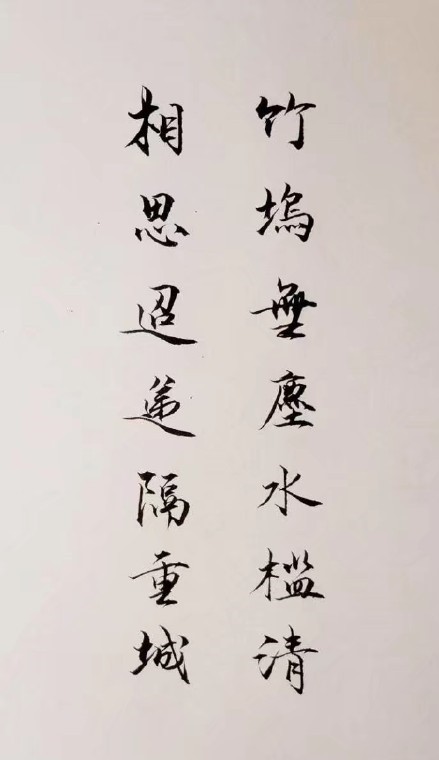 竹塢無塵水檻清
相思迢递隔重城